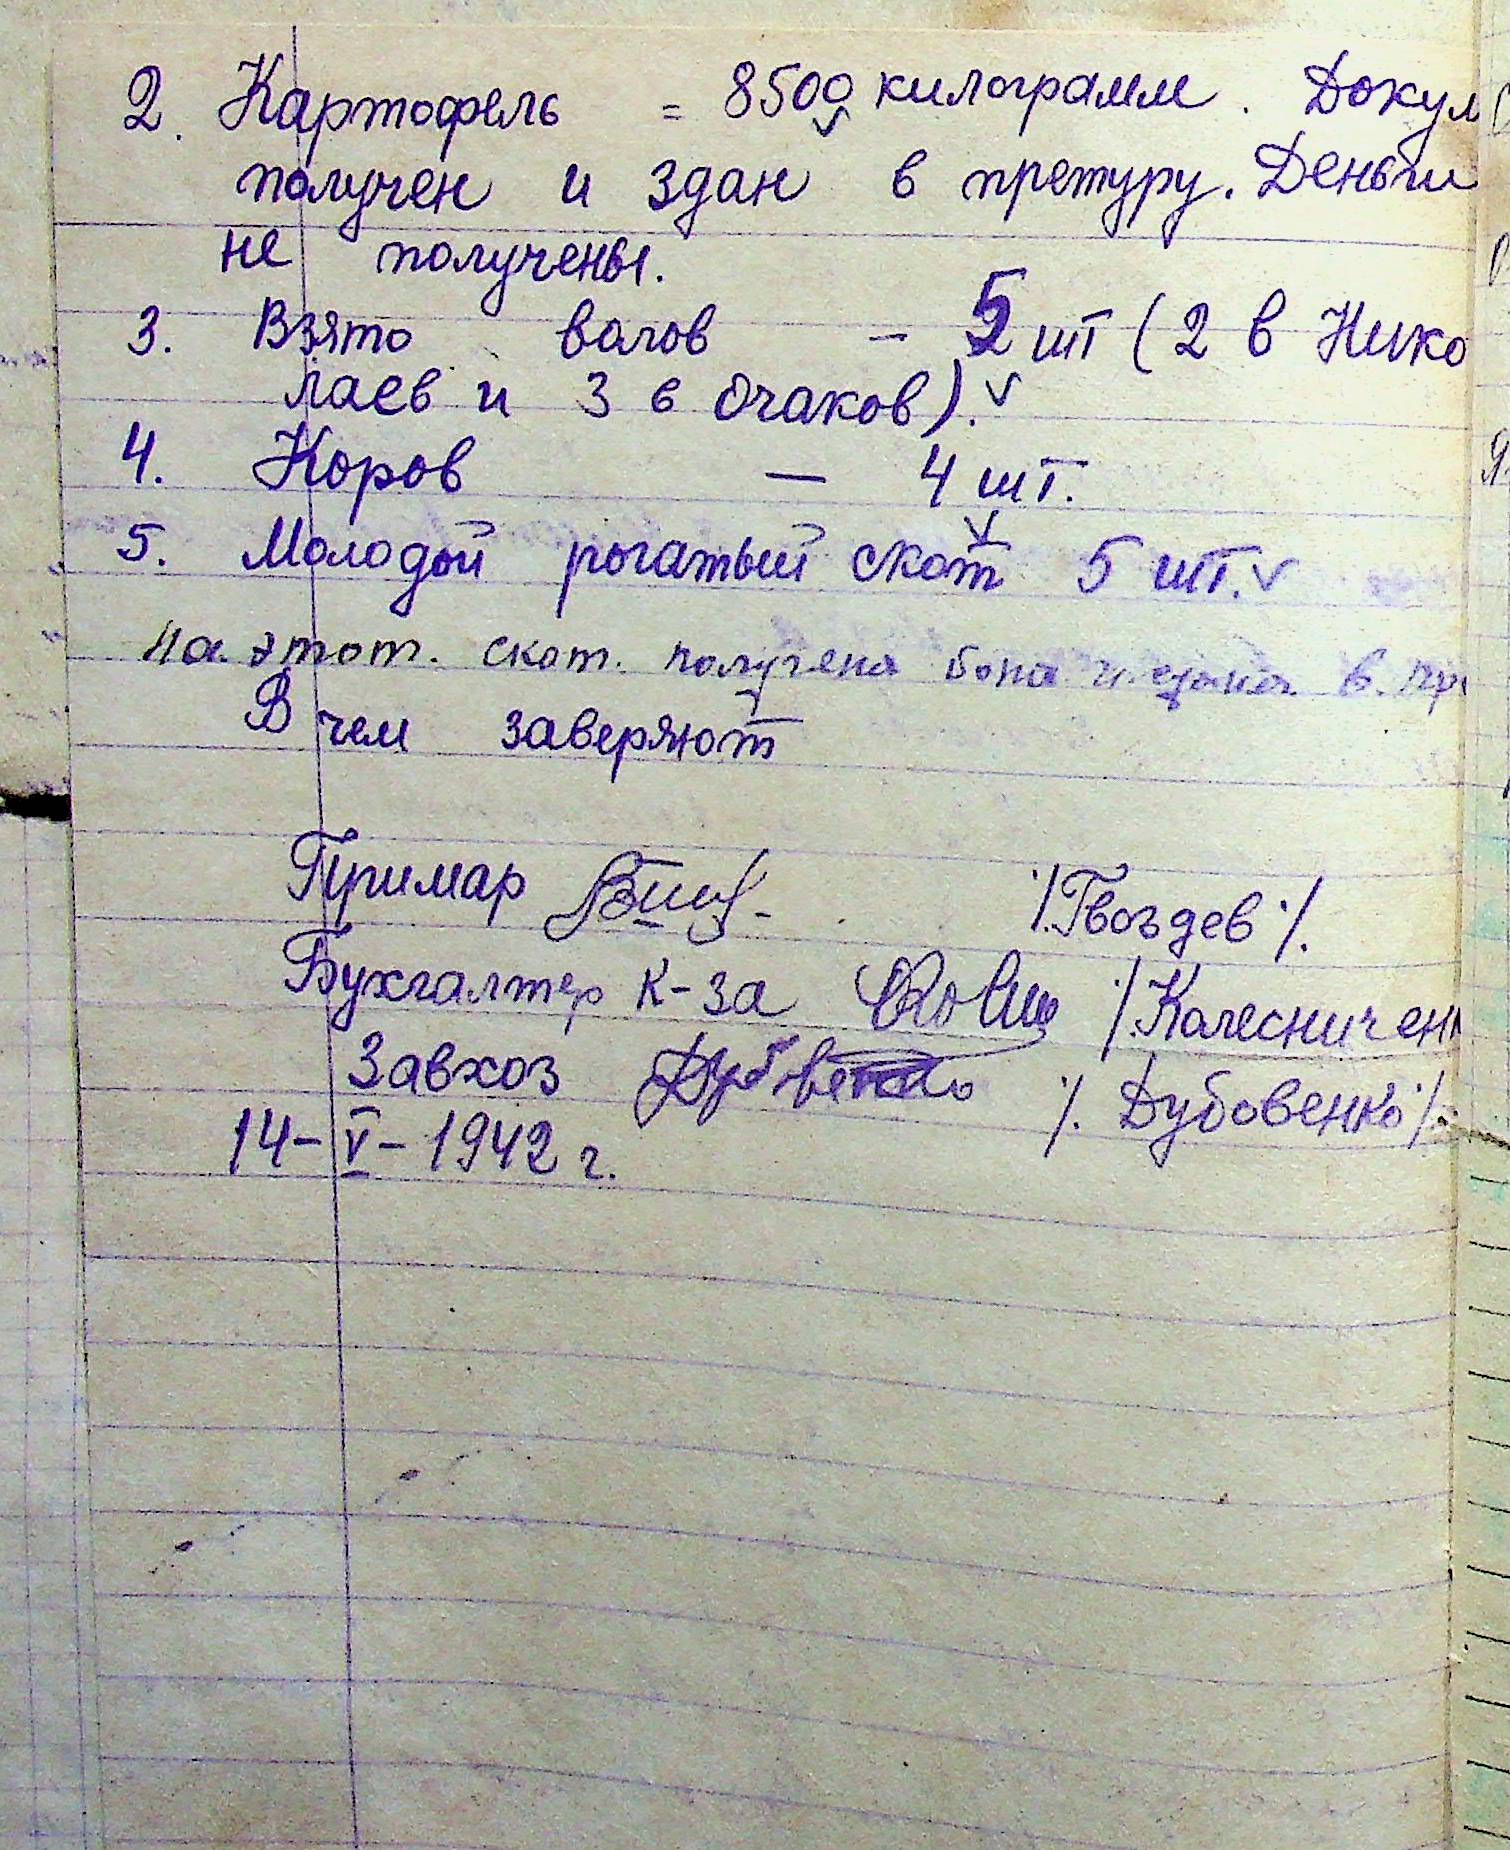 2. Картофель = 8500 килограмм. Докум
получен и здан в претуру. Деньги
не получены.
3. Взято волов - 5 шт (2 в Нико
лаев и 3 в Очаков).
4. Коров — 4 шт.
5. Молодой рогатый скот 5 шт.
На этот. скот. получена бона и сдана в. пр
В чем заверяют
Примар /.Гвоздев./.
Бухгалтер К-за /.Колесничен
Завхоз Дубовенко /. Дубовенко./.
14-V-1942 г.